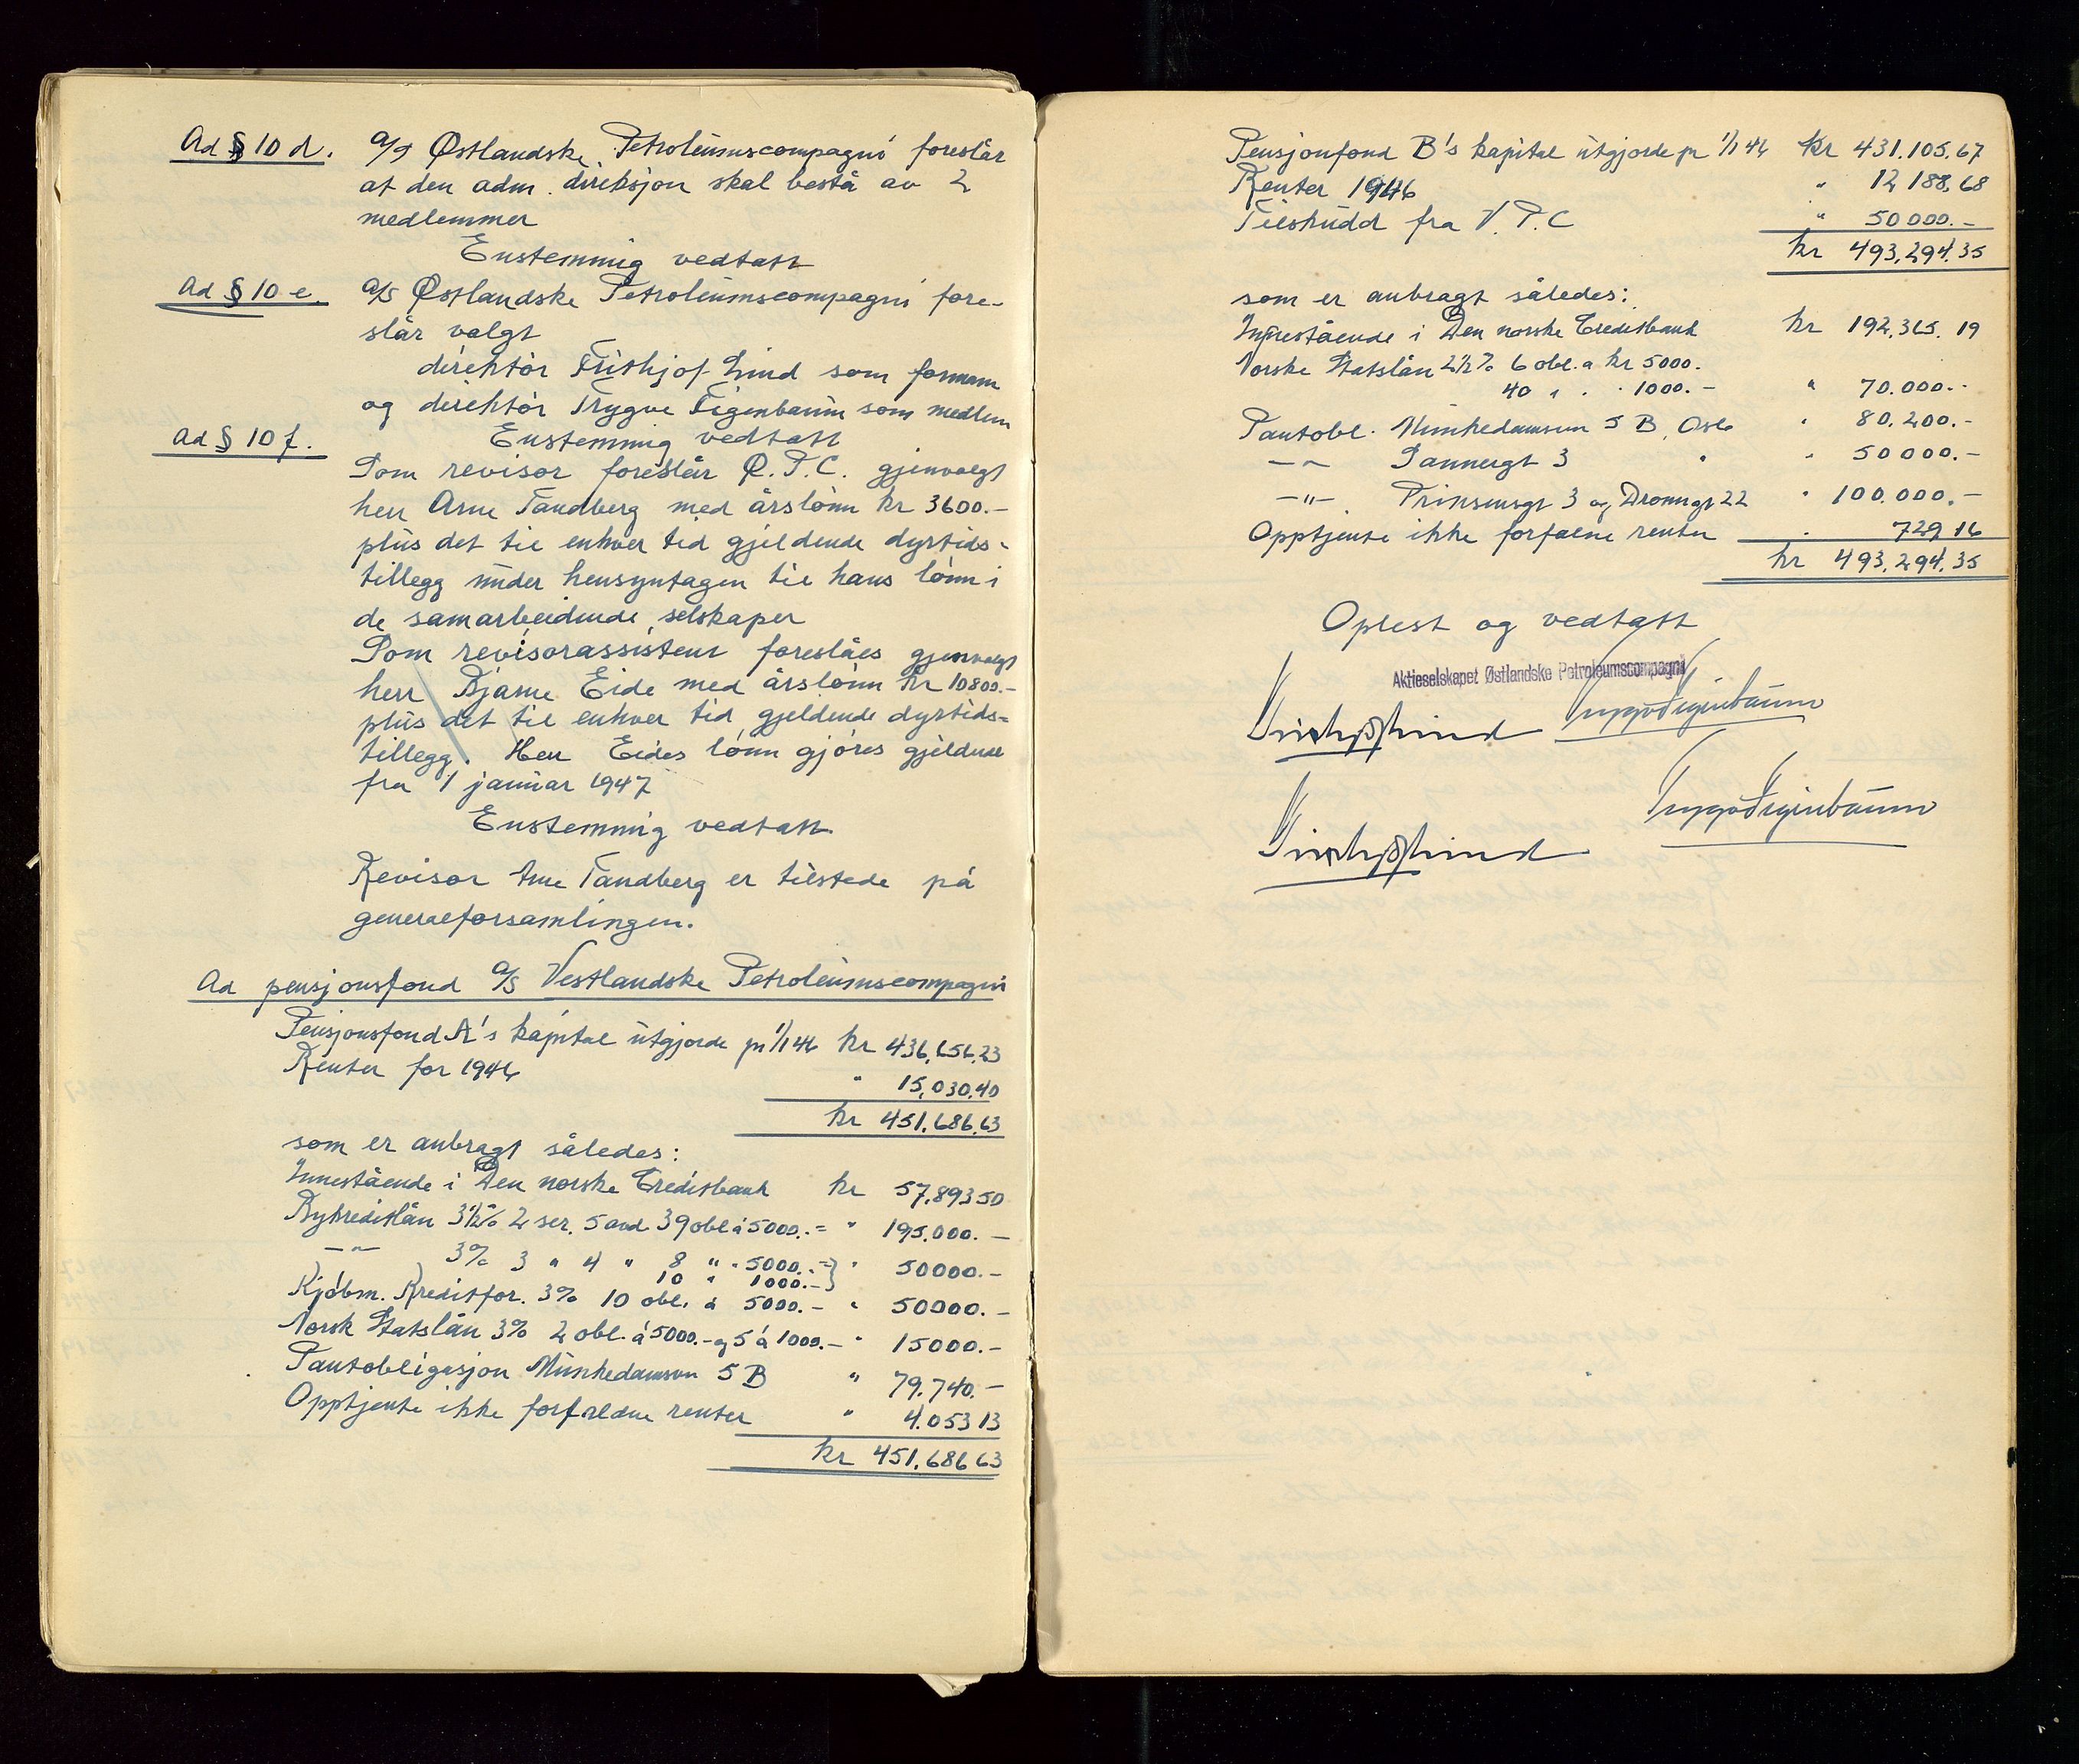 Ad § 10 d. A/S Østlandske Petroleumscompagni foreslår
at den adm. direksjon skal bestå av 2
medlemmer
Enstemmig vedtatt
Ad § 10 e. A/S Østlandske Petroleumscompagni fore-
slår valgt
direktör Frithjof Lind som formann
og direktör Trygve Figenbaum som medlem
Enstemmig vedtatt
Ad § 10 f.
Som revisor foreslår Ø.P.C. gjenvalgt
herr Arne Tandberg med årslönn kr 3600.-
plus det til enhver tid gjeldende dyrtids-
tillegg under hensyntagen til hans lönn i
de samarbeidende selskaper
Som revisorassistent foreslåes gjenvalgt
herr Bjarne Eide med årslönn kr 10800.-
plus det til enhver tid gjeldende dyrtids-
tillegg. Herr Eides lönn gjöres gjeldende
fra 1 januar 1947
Enstemmig vedtatt.
Revisor Arne Tandberg er tilstede på
generalforsamlingen.
Ad pensjonsfond A/S Vestlandske Petroleumscompagni
Pensjonsfond A's kapital utgjorde pr 1/1 46 kr 436,656,23
Renter for 1946 " 15,030,40
kr 451,686,63
som er anbragt således:
Innestående i Den norske Creditbank kr 57,893 50
Bykreditlån 3 1/2% 2 ser. 5 avd 39 obl à 5000.- = " 195.000.-
—"— 3% 3 " 4 " 8 " " 5000.- =} " 50000.-
10 " 1000.-}
Kjöbm. Kreditfor. 3% 10 obl. à 5000.- " 50000.-
Norsk Statslån 3% 2 obl. à 5000.- og 5 à 1000.- " 15000.-
Pantobligasjon Munkedamsvn 5 B " 79.740.-
Opptjente ikke forfaldne renter " 4.053 13
kr 451.686 63
Pensjonfond B's kapital utgjorde pr 1/1 46 kr 431.105,67
Renter 1946 " 12 188,68
Tilskudd fra V.P.C " 50 000.-
kr 493,294.35
som er anbragt således:
Innestående i Den norske Creditbank kr 192,365.19
Norske Statslån 2 1/2% 6 obl. a kr 5000.
40 " " 1000.- " 70.000.-
Pantobl. Munkedamsvn 5 B, Oslo " 80.200.-
—"— Sannergt 3 " " 50 000.-
—"— Prinsensgt 3 og Dronngt 22 " 100.000.-
Opptjente ikke forfalne renter " 729 16
kr 493,294.35
Oplest og vedtatt
Aktieselskapet Østlandske Petroleumscompagni
Frithjof Lind Trygve Figenbaum
Trygve Figenbaum
Frithjof Lind